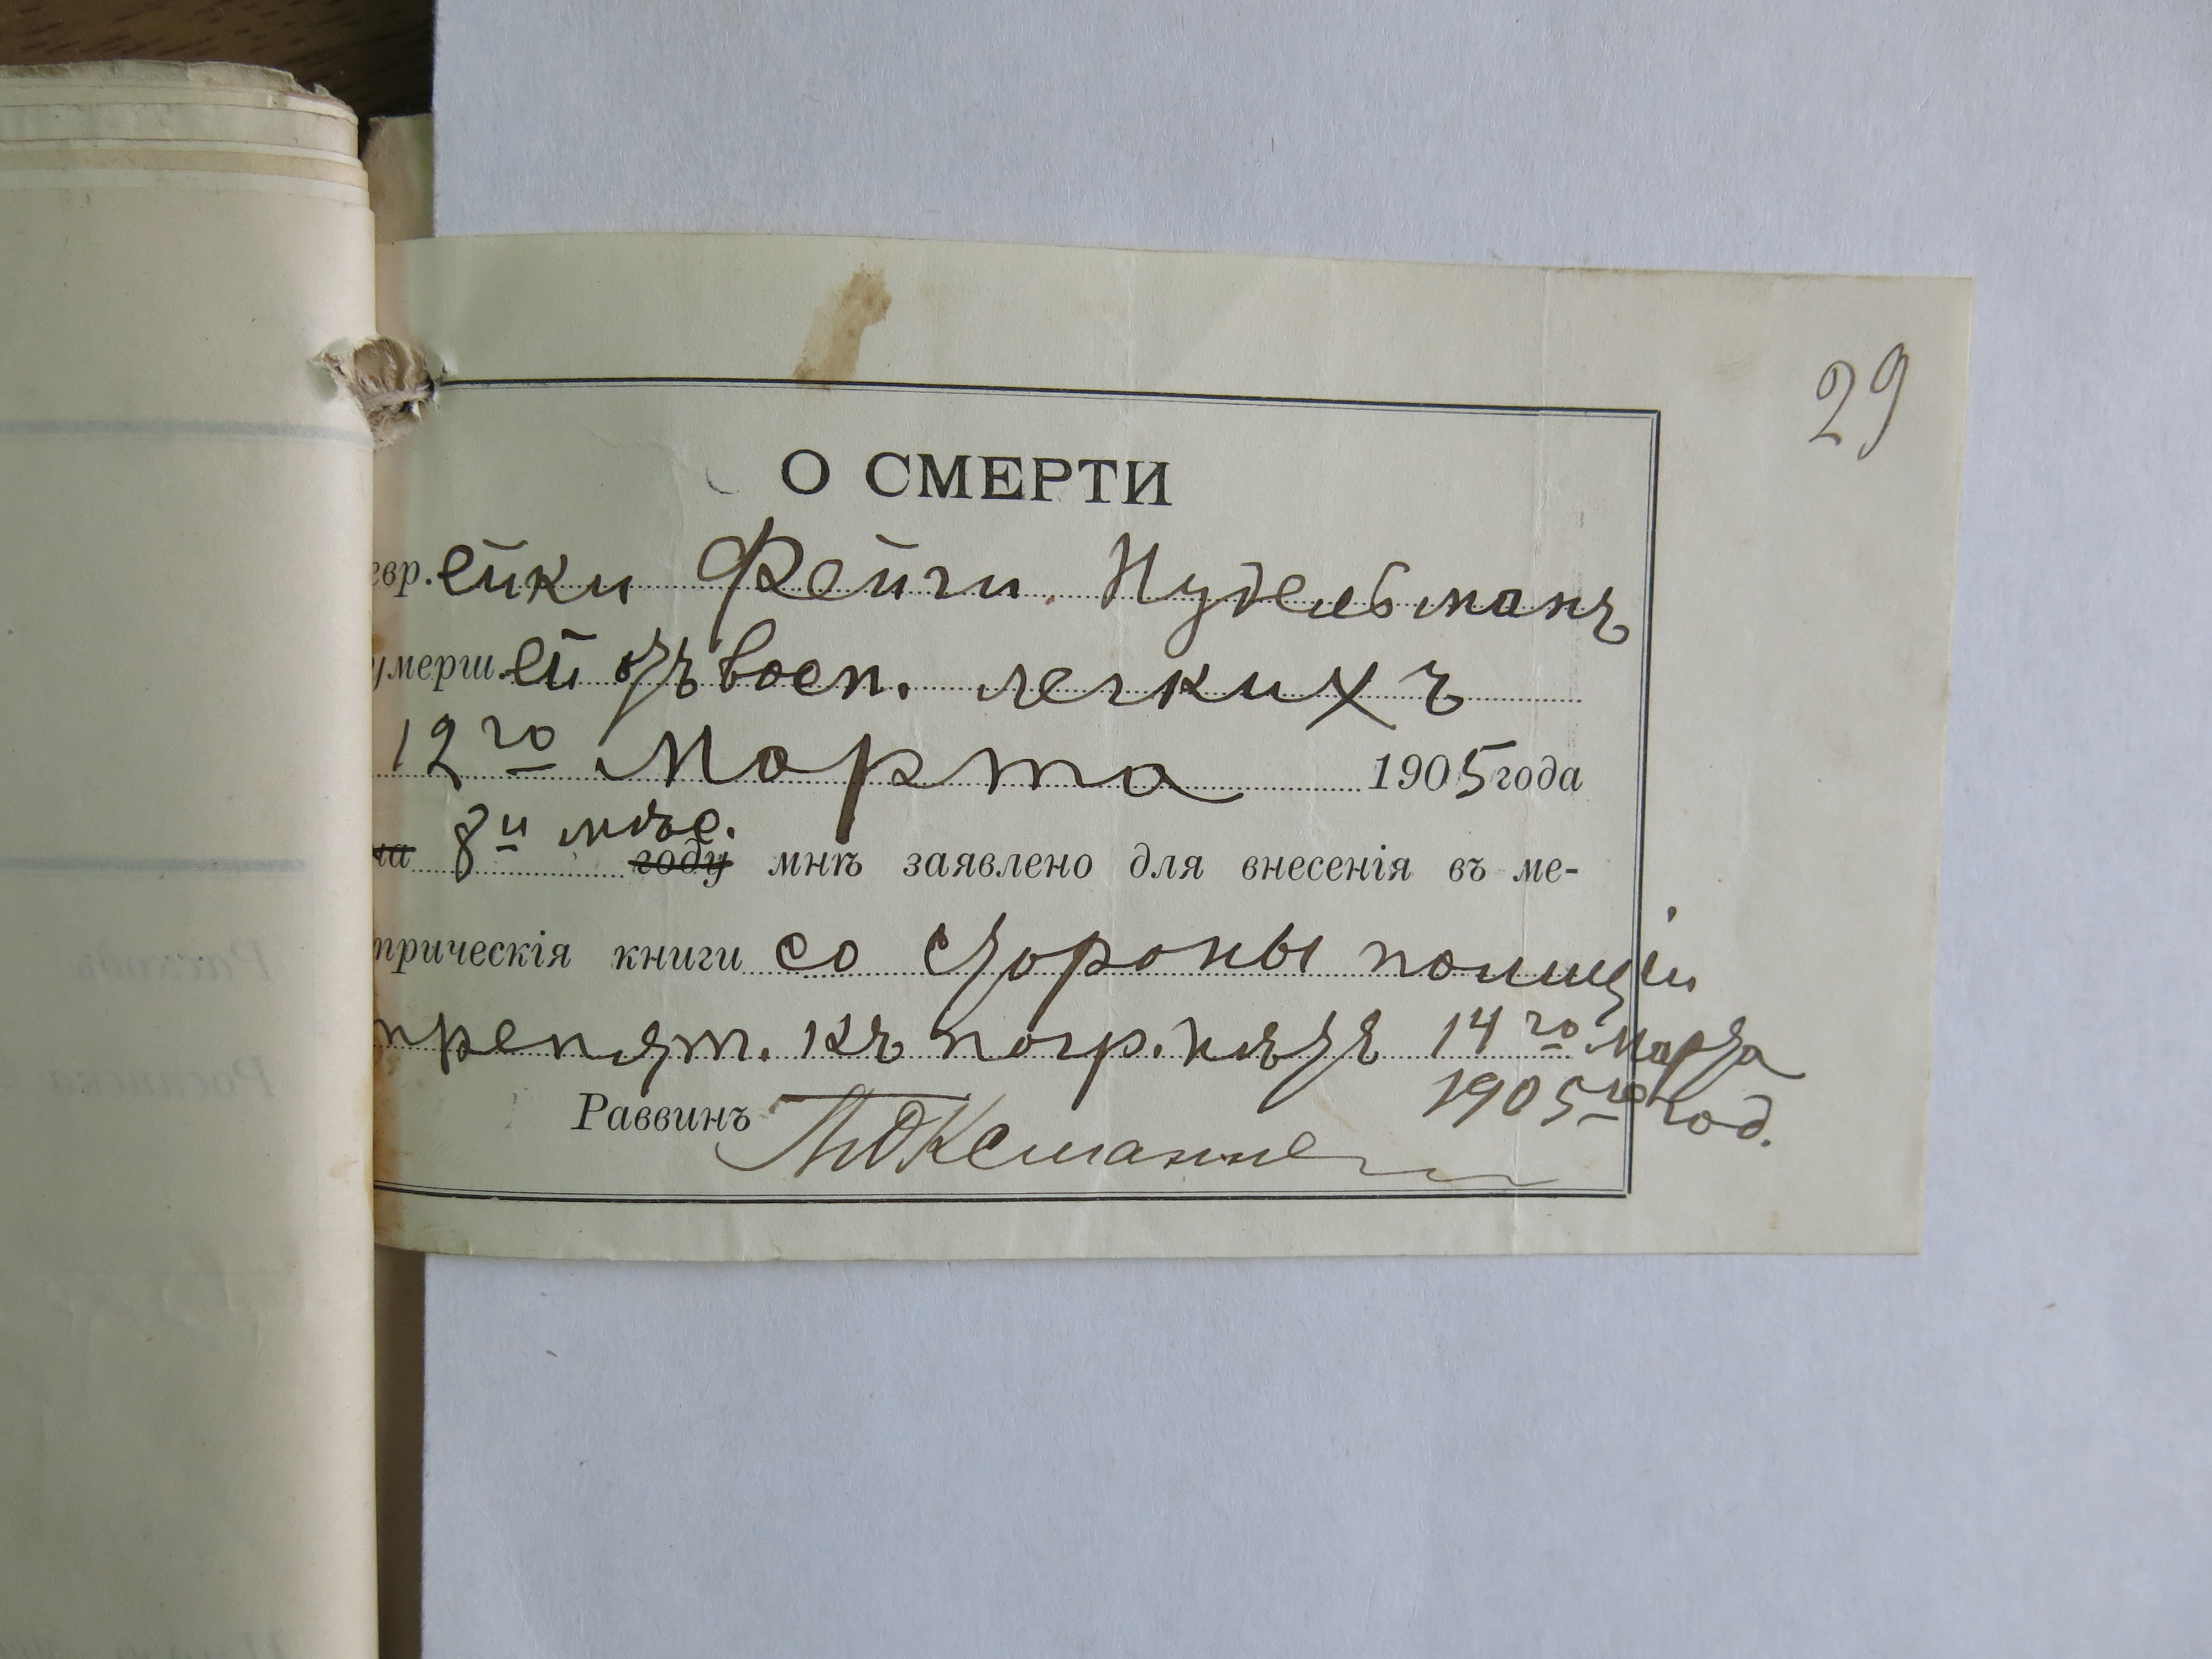 29
О СМЕРТИ
евр. ейки Фейги Нудельманъ
умерш. ей отъ восп. легкихъ
12 го Марта 1905 года
на 8 и мѣс. году мнѣ заявлено для внесенія въ ме-
трическія книги со стороны полиціи
препят. къ погр. нѣтъ 14 го Марта
1905 го год.
Раввинъ